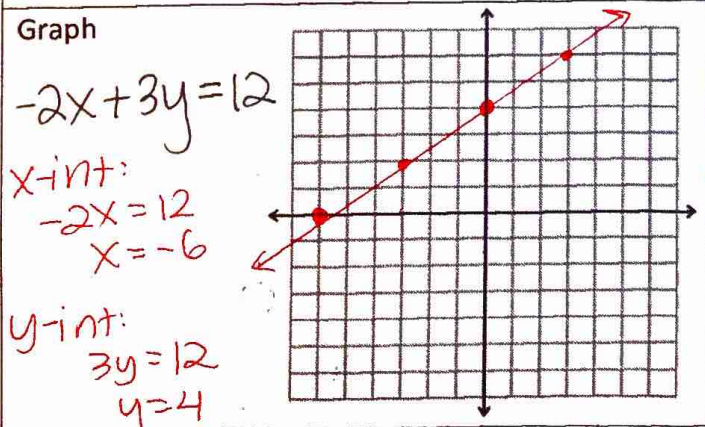 Graph
-2x+3y=12
x-int:
-2x=12
x=-6
y-int:
3y=12
y=4